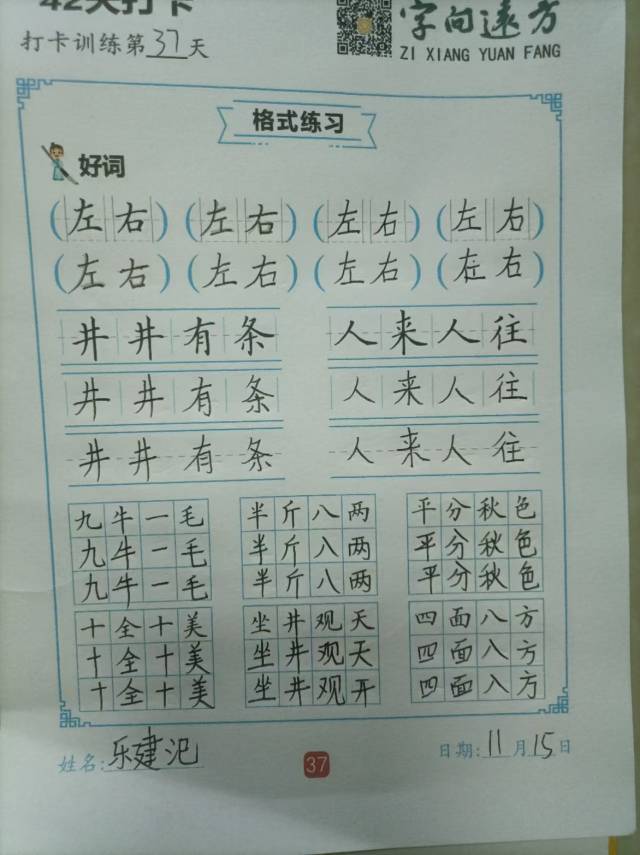 42天打卡
打卡训练第37天
字向远方
ZI XIANG YUAN FANG
格式练习
好词
(左右) (左右) (左右) (左右)
(左右) (左右) (左右) (在右)
井井有条 人来人往
井井有条 人来人往
井井有条 人来人往
九牛一毛 半斤八两 平分秋色
九牛一毛 半斤入两 平分秋色
九牛一毛 半斤八两 平分秋色
十全十美 坐井观天 四面八方
十全十美 坐井观天 四面八方
十全十美 坐井观开 四面入方
姓名:乐建汜 37 日期:11月15日